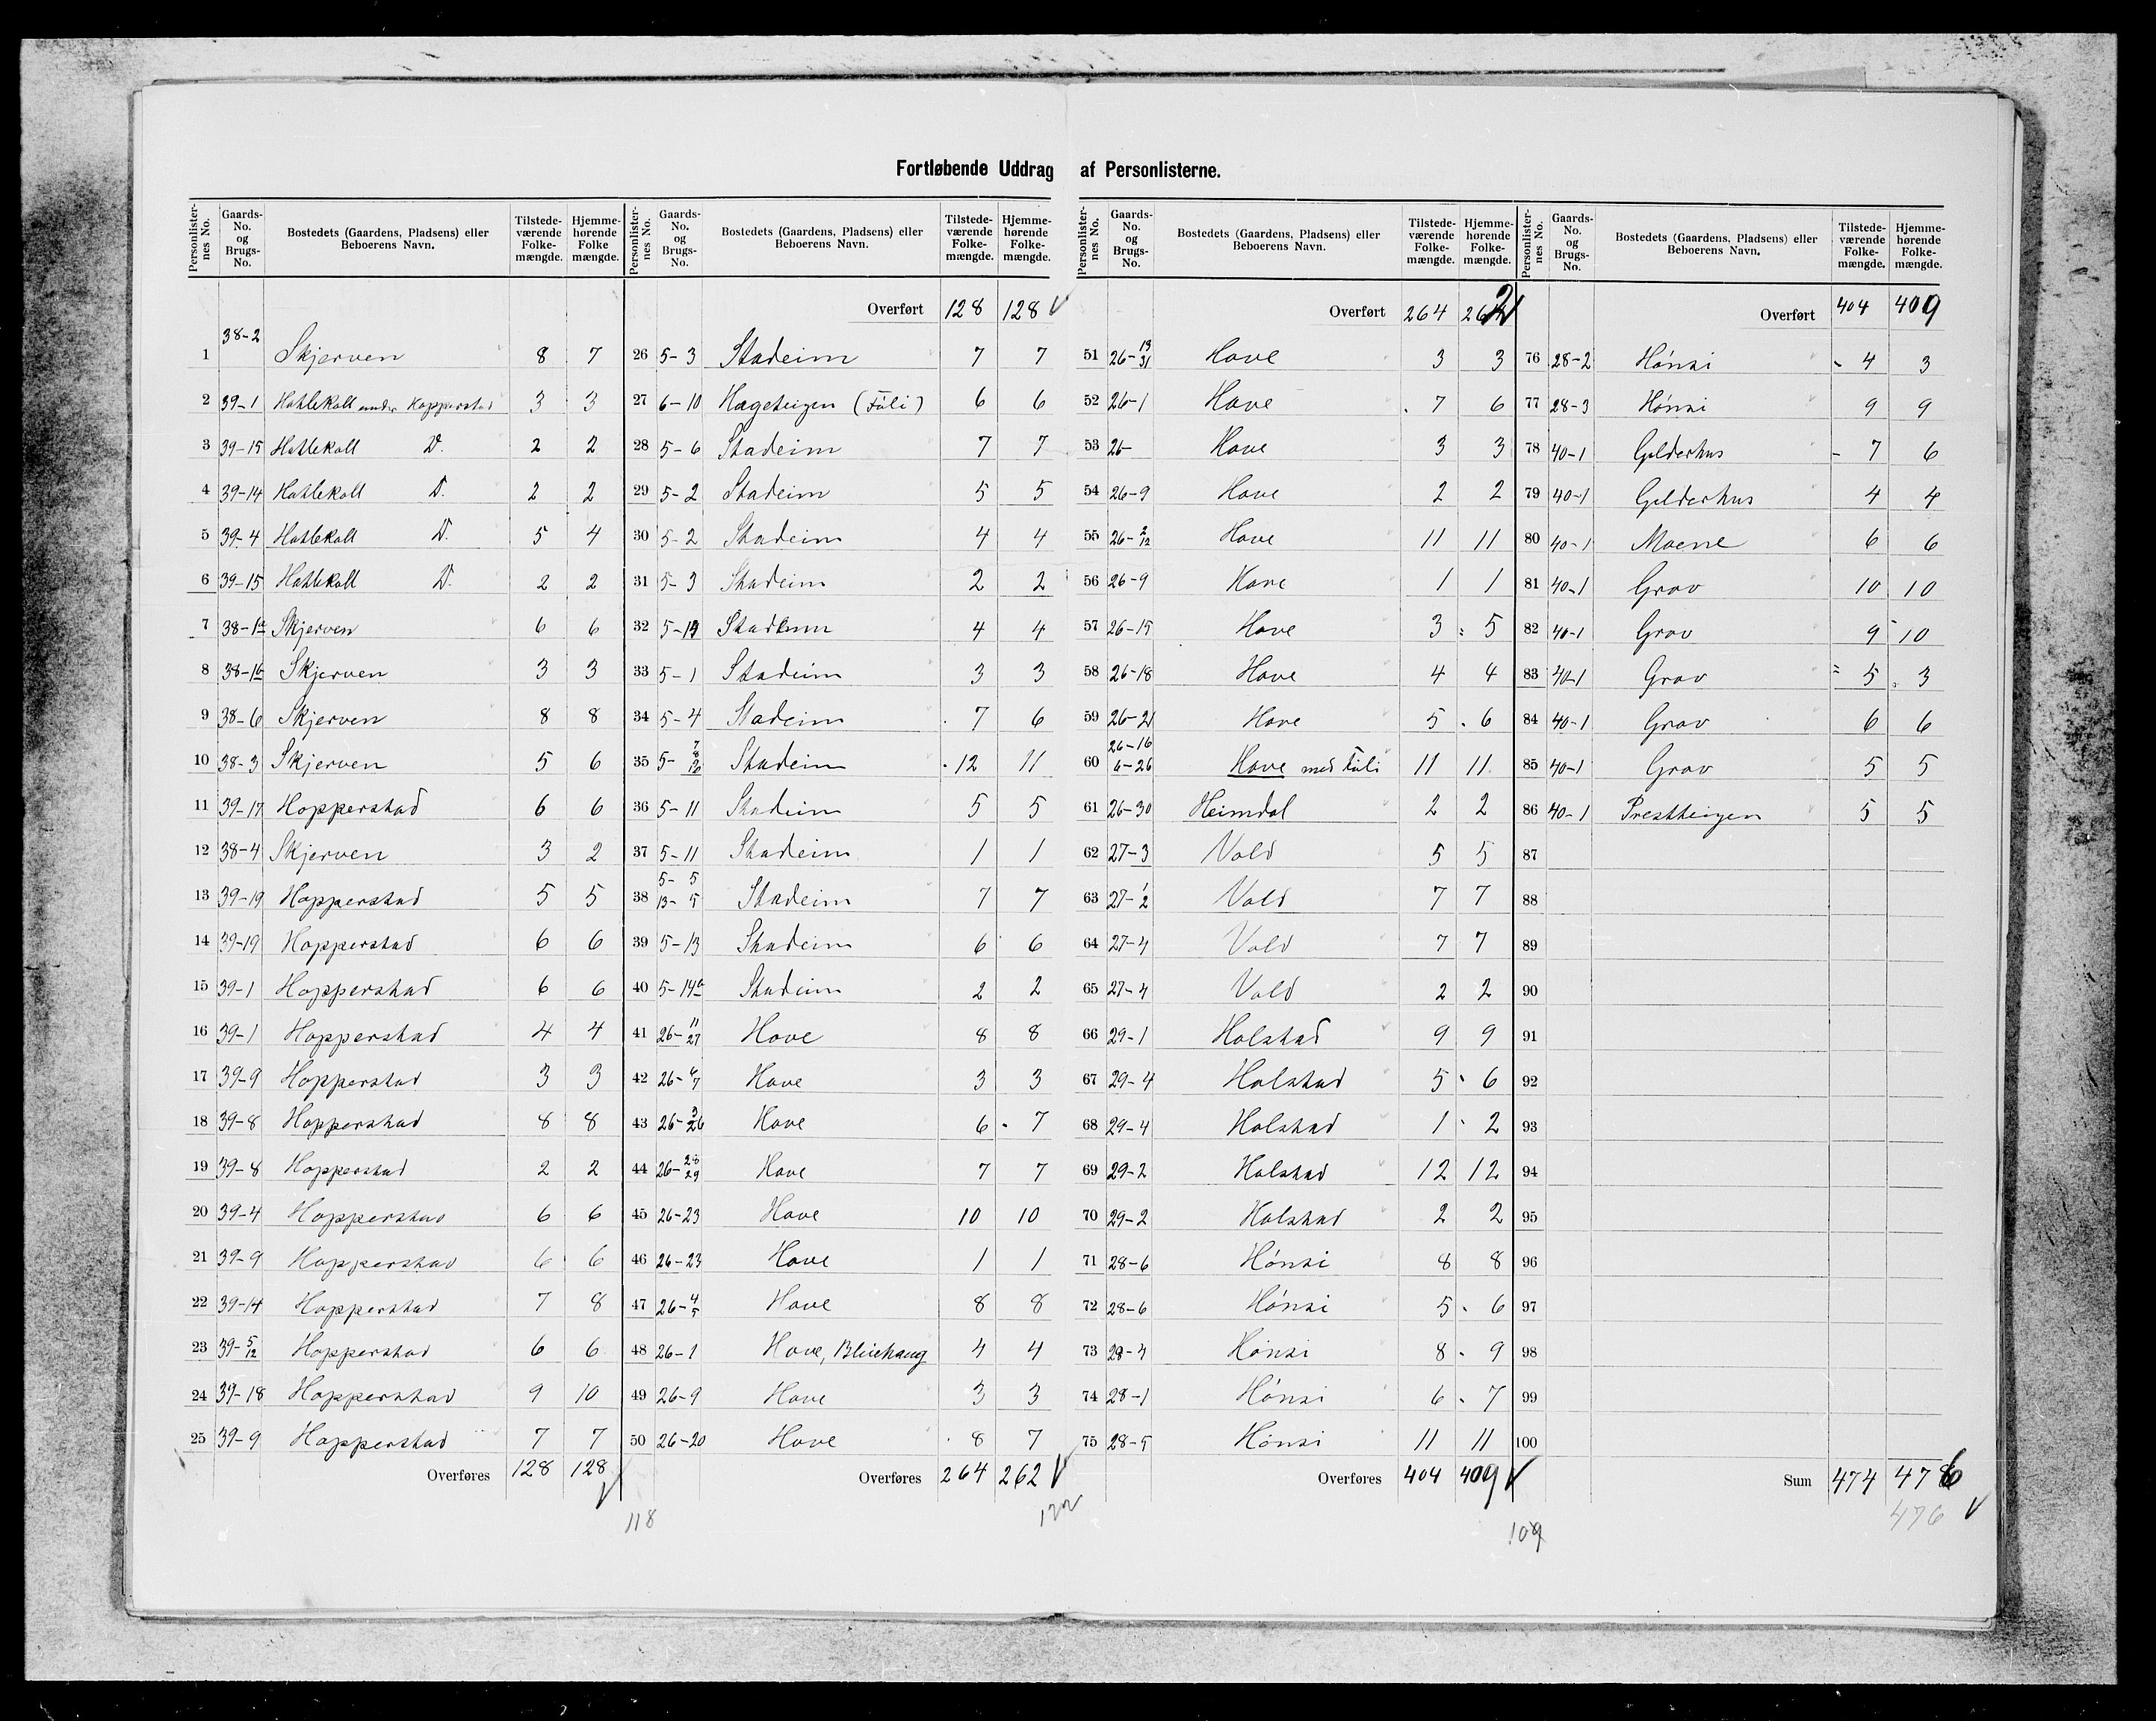 Fortløbende Uddrag af Personlisterne.
Personlister-nes No. | Gaards-No. og Brugs-No. | Bostedets (Gaardens, Pladsens) eller Beboerens Navn. | Tilstede-værende Folke-mængde. | Hjemme-hørende Folke mængde.
1 38-2 Skjerven 8 7
2 39-1 Hatlekoll under Hopperstad 3 3
3 39-15 Hatlekoll D. 2 2
4 39-14 Hatlekoll D. 2 2
5 39-4 Hatlekoll D. 5 4
6 39-15 Hatlekoll D. 2 2
7 38-1a Skjerven 6 6
8 38-1b Skjerven 3 3
9 38-6 Skjerven 8 8
10 38-3 Skjerven 5 6
11 39-17 Hopperstad 6 6
12 38-4 Skjerven 3 2
13 39-19 Hopperstad 5 5
14 39-19 Hopperstad 6 6
15 39-1 Hopperstad 6 6
16 39-1 Hopperstad 4 4
17 39-9 Hopperstad 3 3
18 39-8 Hopperstad 8 8
19 39-8 Hopperstad 2 2
20 39-4 Hopperstad 6 6
21 39-9 Hopperstad 6 6
22 39-14 Hopperstad 7 8
23 39-5/12 Hopperstad 6 6
24 39-18 Hopperstad 9 10
25 39-9 Hopperstad 7 7
Overføres 128 128
118
Personlister-nes No. | Gaards-No. og Brugs-No. | Bostedets (Gaardens, Pladsens) eller Beboerens Navn. | Tilstede-værende Folke-mængde. | Hjemme-hørende Folke-mængde.
Overført 128 128
26 5-3 Stadeim 7 7
27 6-10 Hageteigen (Føli) 6 6
28 5-6 Stadeim 7 7
29 5-2 Stadeim 5 5
30 5-2 Stadeim 4 4
31 5-3 Stadeim 2 2
32 5- Stadeim 4 4
33 5-1 Stadeim 3 3
34 5-4 Stadeim 7 6
35 5- Stadeim 12 11
36 5-11 Stadeim 5 5
37 5-11 Stadeim 1 1
38 5-5 13-5 Stadeim 7 7
39 5-13 Stadeim 6 6
40 5-14a Stadeim 2 2
41 26-11/27 Hove 8 8
42 26-6/7 Hove 3 3
43 26-3/26 Hove 6 7
44 26-28/29 Hove 7 7
45 26-23 Hove 10 10
46 26-23 Hove 1 1
47 26-4/5 Hove 8 8
48 26-1 Hove, 4 4
49 26-9 Hove 3 3
50 26-20 Hove 8 7
Overføres 264 262
122
Personlister-nes No. | Gaards-No. og Brugs-No. | Bostedets (Gaardens, Pladsens) eller Beboerens Navn. | Tilstede-værende Folke-mængde. | Hjemme-hørende Folke-mængde.
Overført 264 262
51 26-13/31 Hove 3 3
52 26-1 Hove 7 6
53 26- Hove 3 3
54 26-9 Hove 2 2
55 26-2/12 Hove 11 11
56 26-9 Hove 1 1
57 26-15 Hove 3 5
58 26-18 Hove 4 4
59 26-21 Hove 5 6
60 26-16 6-26 Hove med Føli 11 11
61 26-30 Heimdal 2 2
62 27-3 Vold 5 5
63 27-1/2 Vold 7 7
64 27-4 Vold 7 7
65 27-4 Vold 2 2
66 29-1 Holstad 9 9
67 29-4 Holstad 5 6
68 29-4 Holstad 1 2
69 29-2 Holstad 12 12
70 29-2 Holstad 2 2
71 28-6 Hónsi 8 8
72 28-6 Hónsi 5 6
73 28-4 Hónsi 8 9
74 28-1 Hónsi 6 7
75 28-5 Hónsi 11 11
Overføres 404 409
109
Personlister-nes No. | Gaards-No. og Brugs-No. | Bostedets (Gaardens, Pladsens) eller Beboerens Navn. | Tilstede-værende Folke-mængde. | Hjemme-hørende Folke-mængde.
Overført 404 409
76 28-2 Hónsi 4 3
77 28-3 Hónsi 9 9
78 40-1 Gelderhus 7 6
79 40-1 Gelderhus 4 4
80 40-1 Moene 6 6
81 40-1 Grov 10 10
82 40-1 Grov 9 10
83 40-1 Grov 5 3
84 40-1 Grov 6 6
85 40-1 Grov 5 5
86 40-1 Prestteigen 5 5
87
88
89
90
91
92
93
94
95
96
97
98
99
100
Sum 474 476
476